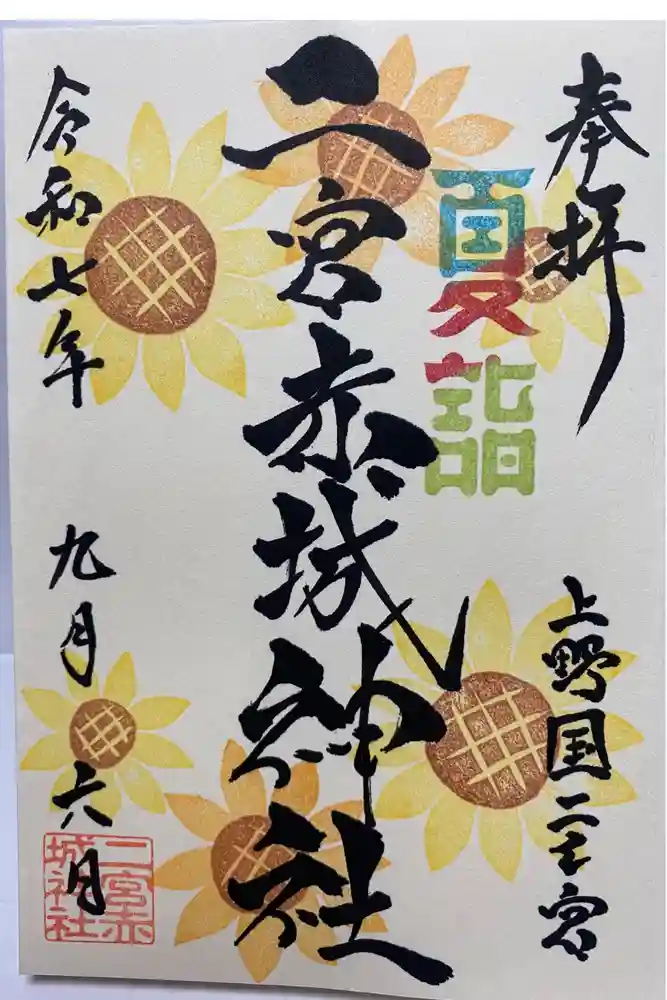 奉拝
上野国二之宮
夏詣
二宮赤城神社
令和七年
九月六日
二宮赤
城神社